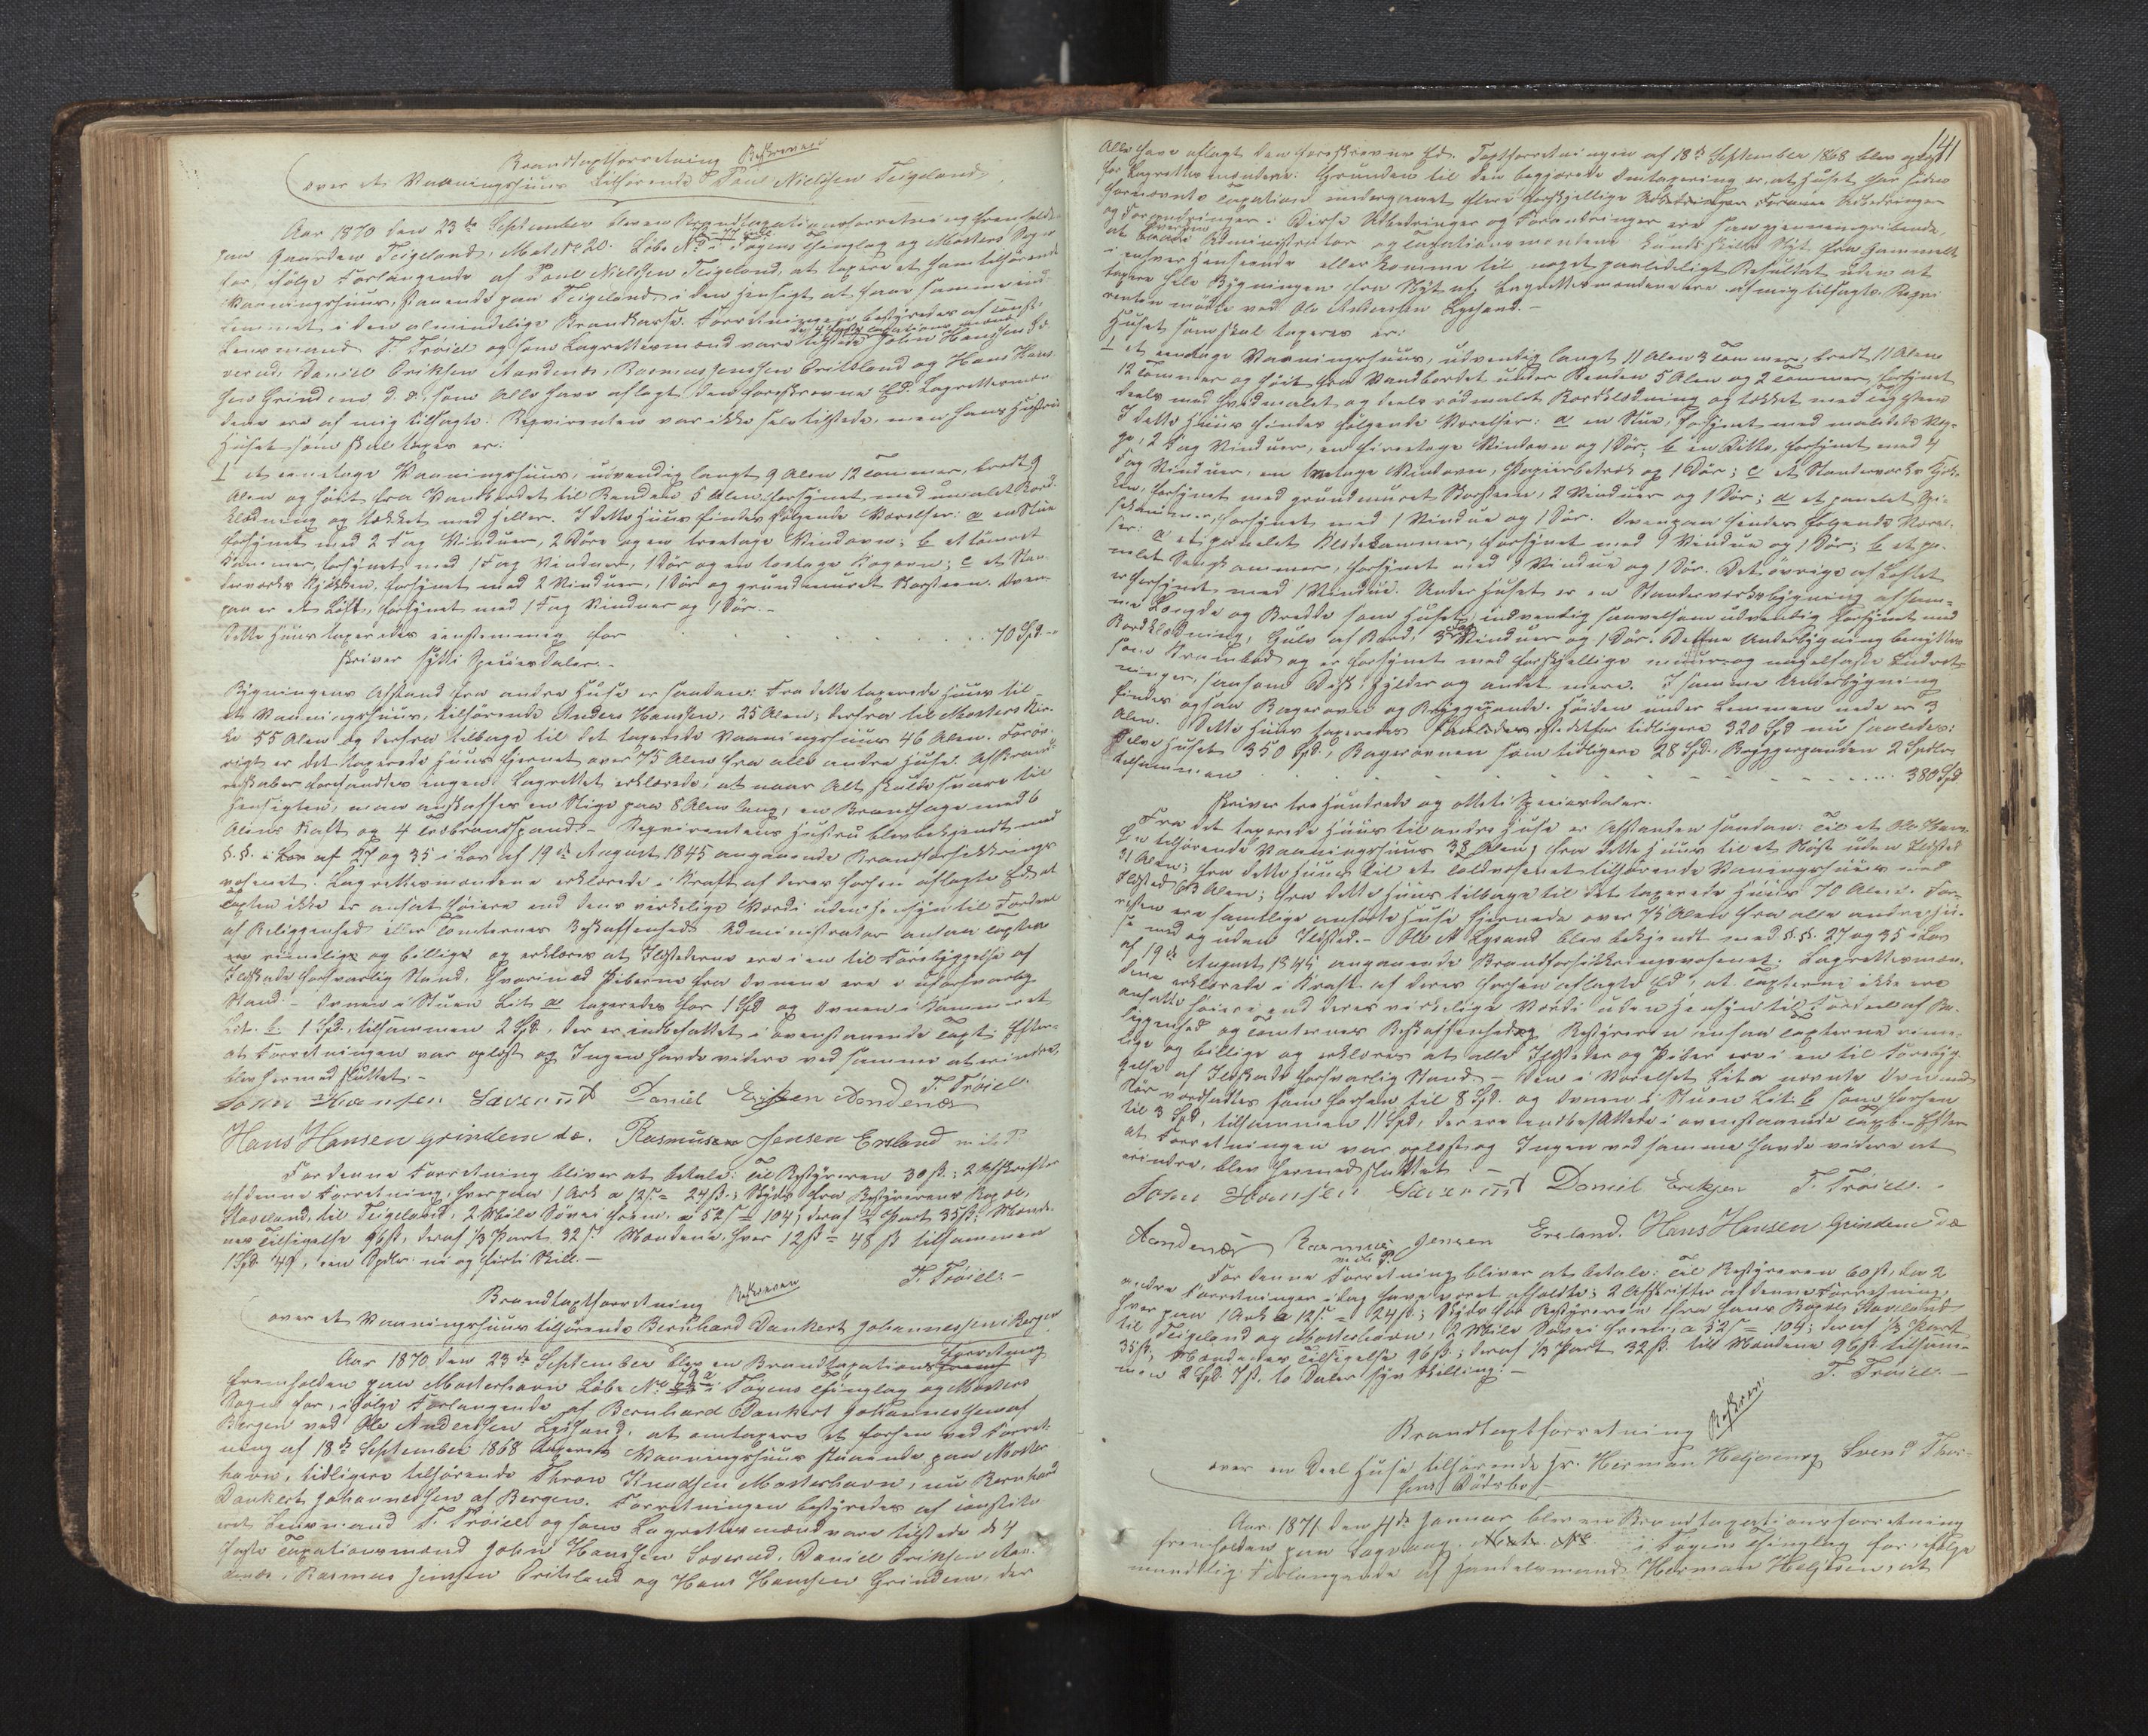 Brandtaxtforretning Beskreven
over et Vaaningshuus tilhørende Poul Nielsen Teigeland.
Aar 1870 den 23de September blev en Brandtaxationsforretning fremholdt
paa Gaarden Teigeland, Mat. No 20. Løbe No i Føyens Thinglag og Mosters Sogn
for ifølge Forlangende af Poul Nielsen Teigeland, at taxere et ham tilhørende
Vaaningshuus, staaende paa Teigeland, i den Hensigt at faae samme ind-
lemmet i den almindelige Brandkasse. Forretningen bestyredes af const.
Lensmand T. Trøiel og som Lagrettesmænd vare tilstede de 4 faste Taxationsmænd John Hansen Sæ-
verud, Daniel Eriksen Aandenæs, Rasmus Jensen Eritsland og Hans Han-
sen Grindem d. æ. som Alle have aflagt den foreskrevne Ed. Lagrettesmæn-
dene ere af mig tilsagte. Requirenten var ikke selv tilstede, men hans Hustru
Huset som skal taxeres er:
1 et eenetages Vaaningshuus, udvendig langt 9 Alen 12 Tommer, bredt 9
Alen og høit fra Vandbordet til Renden 5 Alen, forsynet med umalet Bord-
klædning og tækket med Heller. I dette Huus findes følgende Værelser: a en Stue
forsynet med 2 Fag Vinduer, 2 Døre og en treetages Vindovn; b et tømret
Kammer, forsynet med 1 Fag Vinduer, 1 Dør og en toetages Kogeovn; c et Stan-
derværks Kjøkken, forsynet med 2 Vinduer, 1 Dør og grundmuret Skorsteen. Oven-
paa er et Loft, forsynet med 1 Fag Vinduer og 1 Dør.-
Dette Huus taxeredes eenstemmig for . . . 70 Spd.-
skriver sytti Speciesdaler.-
Bygningens Afstand fra andre Huse er saadan: Fra dette taxerede Huus til
et Vaaningshuus, tilhørende Anders Hansen, 25 Alen; derfra til Mosters Kir-
ke 55 Alen og derfra tilbage til det taxerede Vaaningshuus 46 Alen. Forøv-
rigt er det taxerede Huus fjernet over 75 Alen fra alle andre Huse. Af Brand-
redskaber forefandtes ingen. Lagrettet erklærede, at naar Alt skulde svare til
Hensigten, maa anskaffes en Stige paa 8 Alen lang, en Brandhage med 6
Alens Skaft og 4 Brandspand.- Requirentens Hustru blev bekjendt med
§.§. i Lov af 27 og 35 i Lov af 19de August 1845 angaaende Brandforsikkrings-
væsenet. Lagrettesmændene erklærede i Kraft af deres forhen aflagte Ed, at
Taxten ikke er ansat høiere end dens virkelige Værdi uden Hensyn til Fordeel
af Beliggenhed eller Tomternes Beskaffenhed. Administrator ansaae Taxten
rimelig og billige og erklærer at Ildstederne ere i en til Forebyggelse af
Ildskade forsvarlig Stand, hvorimod Piberne fra Ovnene ere i uforsvarlig
Stand.- Ovnen i Stuen Lit. a taxeredes for 1 Spd og Ovnen i Kammeret
Lit. b. 1 Spd., tilsammen 2 Spd., der er indbefattet i ovenstaaende Taxt. Efter-
at Forretningen var oplæst og Ingen havde videre ved samme at erindre,
blev hermed sluttet.-
John Hansen Sæverud Daniel Eriksen Aandenæs T. Trøiel.
Hans Hansen Grindem d.æ. Rasmus Jensen Ersland m.i.l.P.
For denne Forretning bliver at betale: Til Bestyreren 30 ß.; 2 Afskrifter
af denne Forretning, hver paa 1 Ark a 12 ß = 24 ß.; Skyds fra Bestyrerens Bopæl,
Staveland, til Teigeland, 2 Mile Søvei frem, a 52 ß = 104; deraf 1/3 Part 35 ß; Mænde-
nes Tilsigelse 96 ß, deraf 1/3 Part 32 ß. Mændene, hver 12 ß = 48 ß tilsammen
1 Spd. 49, een Spdlr. ni og firti Skill.-
T. Trøiel.-
Brandtaxtforretning Beskreven
over et Vaaningshuus tilhørende Bernhard Dankert Johannessen i Bergen
Aar 1870 den 23de September blev en Brandtaxationsforretning
fremholden paa Mosterhavn Løbe No 19a i Føyens Thinglag og Mosters
Sogn for, ifølge Forlangende af Bernhard Dankert Johannessen af
Bergen ved Ole Andersen Lysand, at omtaxere et forhen ved Forret-
ning af 18de September 1868 taxeret Vaaningshuus staaende paa Moster-
havn, tidligere tilhørende Thron Knudsen Mosterhavn, nu Bernhard
Dankert Johannessen af Bergen. Forretningen bestyredes af constitu-
eret Lensmand T. Trøiel og som Lagrettesmænd vare tilstede de 4
faste Taxationsmænd John Hansen Sæverud, Daniel Eriksen Aan-
denæs, Rasmus Jensen Eritsland og Hans Hansen Grindem, der
141
Alle have aflagt den foreskrevne Ed. Taxtforretningen af 18de September 1868 blev oplæst
for Lagrettesmændene: Grunden til den begjærede Omtaxering er, at Huset har siden
fornævnte Taxation undergaaet flere forskjellige Udbedringer
og Forandringer. Disse Udbedringer og Forandringer ere saa gjennemgribende,
at hverken Administrator og Taxationsmændene kunde skille Nyt fra Gammelt
i enhver Henseende eller komme til noget paalideligt Resultat uden at
taxere hele Bygningen fra Nyt af. Lagrettesmændene ere af mig tilsagte. Requi-
renten mødte ved Ole Andersen Lysand.-
Huset som skal taxeres er:
1 et eenetages Vaaningshuus, udvendig langt 11 Alen 3 Tommer, bredt 11 Alen
12 Tommer og høit fra Vandbordet under Renden 5 Alen og 2 Tommer, forsynet
deels med hvidmalet og deels rødmalet Bordklædning og tækket med Tagsteen
I dette Huus findes følgende Værelser: a en Stue, forsynet med malede Væg-
ge, 2 Fag Vinduer, en fireetages Vindovn og 1 Dør; b en Ditto, forsynet med 4
Fag Vinduer, en toetages Vindovn, Papiirbetræk og 1 Dør; c et Standerværks Kjøk-
ken, forsynet med grundmuret Skorsteen, 2 Vinduer og 1 Dør; d et panelet Spi-
sekammer, forsynet med 1 Vindue og 1 Dør. Ovenpaa findes følgende Værel-
ser: a et panelet Klædekammer, forsynet med 1 Vindue og 1 Dør; b et pa-
nelet Sengkammer, forsynet med 1 Vindue og 1 Dør. Det øvrige af Loftet
er forsynet med 1 Vindue. Under Huset er en Standerværksbygning af sam-
me Længde og Bredde som Huset, indvendig saavelsom udvendig forsynet med
Bordklædning, Gulv af Bord, 3 Fag Vinduer og 1 Dør. Denne Underbygning benyttes
som Krambod og er forsynet med forskjellige muur- og nagelfaste Indret-
ninger, saasom Disk, Hylder og andet mere. I samme Underbygning
findes ogsaa Bagerovn og Bryggepande. Høiden under Lemmen nede er 3
Alen. Dette Huus taxeredes istedetfor tidligere 320 Spd nu saaledes:
Selve Huset 350 Spd., Bagerovnen som tidligere 28 Spd., Bryggepanden 2 Spdlr.
tilsammen . . . 380 Spd.
skriver tre Hundrede og otteti Speciesdaler.
Fra det taxerede Huus til andre Huse er Afstanden saadan: Til et Ole Han-
sen tilhørende Vaaningshuus 38 Alen; fra dette Huus til et Nøst uden Ildsted
31 Alen; fra dette Huus til et Toldvæsenet tilhørende Vaaningshuus med
Ildsted 63 Alen; fra dette Huus tilbage til det taxerede Huus 70 Alen. For-
resten ere samtlige anførte Huse fjernede over 75 Alen fra alle andre Hu-
se med og uden Ildsted.- Ole A. Lysand blev bekjendt med §.§. 27 og 35 i Lov
af 19de August 1845 angaaende Brandforsikkringsvæsenet. Lagrettesmæn-
dene erklærede i Kraft af deres forhen aflagte Ed, at Taxterne ikke ere
ansatte høiere end deres virkelige Værdi uden Hensyn til Fordeel af Be-
liggenhed og Tomternes Beskaffenhed. Bestyreren ansaae Taxterne rime-
lige og billige og erklærer at alle Ildsteder og Piber ere i en til Forebyg-
gelse af Ildskade forsvarlig Stand.- Den i Værelset Lit a nævnte Ovn med
Rør værdsattes som forhen til 8 Spd. og Ovnen i Stuen Lit. b som forhen
til 3 Spd, tilsammen 11 Spd, der ere indbefattede i ovenstaaende Taxt.- Efter
at Forretningen var oplæst og Ingen ved samme havde videre at
erindre, blev hermed sluttet.-
John Hansen Sæverud Daniel Eriksen T. Trøiel.
Aandenæs Rasmus Jensen Ersland. Hans Hansen Grindem d.æ
m.i.l.P.
For denne Forretning bliver at betale: Til Bestyreren 60 ß, da 2
andre Forretninger idag have været afholdte; 2 Afskrifter af denne Forretning,
hver paa 1 Ark a 12 ß = 24 ß.; Skyds for Bestyreren fra hans Bopæl Staveland
til Teigeland og Mosterhavn, 2 Mile Søvei frem, a 52 ß = 104; deraf 1/3 Part
35 ß; Mændenes Tilsigelse 96 ß; deraf 1/3 Part 32 ß. til Mændene 96 ß tilsam-
men 2 Spd. 7 ß. to Daler syv Skilling.-
T. Trøiel.-
Brandtaxtforretning Beskreven
over en Deel Huse tilhørende Hr. Herman Heljesen og Svend Thor-
sens Dødsbo
Aar 1871 den 4de Januar blev en Brandtaxationsforretning
fremholden paa Sagvaag. Matr. No i Føyens Thinglag for, ifølge
mundtlig Forlangende af Handelsmand Herman Heljesen, at